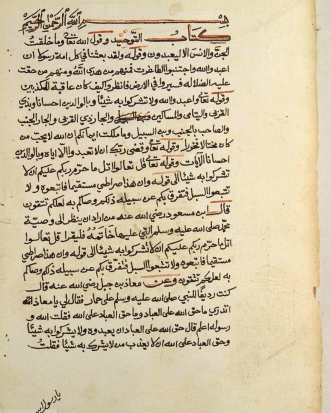 بسم الله الرحمن الرحيم
كتاب التوحيد وقول الله تعالى وما خلقت
الجن والانس الا ليعبدون وقوله ولقد بعثنا في كل امة رسولا ان
اعبدوا الله واجتنبوا الطاغوت فمنهم من هدى الله ومنهم من حقت
عليه الضلالة فسيروا في الارض فانظروا كيف كان عاقبة المكذبين
وقوله تعالى واعبدوا الله ولا تشركوا به شيئا وبالوالدين احسانا وبذي
القربى واليتامى والمساكين والجار ذي القربى والجار الجنب
والصاحب بالجنب وابن السبيل وما ملكت ايمانكم ان الله لا يحب من
كان مختالا فخورا وقوله تعالى وقضى ربك ان لا تعبدوا الا اياه وبالوالدين
احسانا الايات وقوله تعالى قل تعالوا اتل ما حرم ربكم عليكم ان لا
تشركوا به شيئا الى قوله وان هذا صراطي مستقيما فاتبعوه ولا
تتبعوا السبل فتفرق بكم عن سبيله ذلكم وصاكم به لعلكم تتقون
قال ابن مسعود رضي الله عنه من اراد ان ينظر الى وصية
محمد صلى الله عليه وسلم التي عليها خاتمه فليقرأ قل تعالوا
اتل ما حرم ربكم عليكم ان لا تشركوا به شيئا الى قوله وان هذا صراطي
مستقيما فاتبعوه ولا تتبعوا السبل فتفرق بكم عن سبيله ذلكم وصاكم
به لعلكم تتقون وعن معاذ بن جبل رضي الله عنه قال
كنت رديفا للنبي صلى الله عليه وسلم على حمار فقال لي يا معاذ
اتدري ما حق الله على العباد وما حق العباد على الله فقلت الله و
رسوله اعلم قال حق الله على العباد ان يعبدوه ولا يشركوا به شيئا
وحق العباد على الله ان لا يعذب من لا يشرك به شيئا فقلت
يا رسول الله